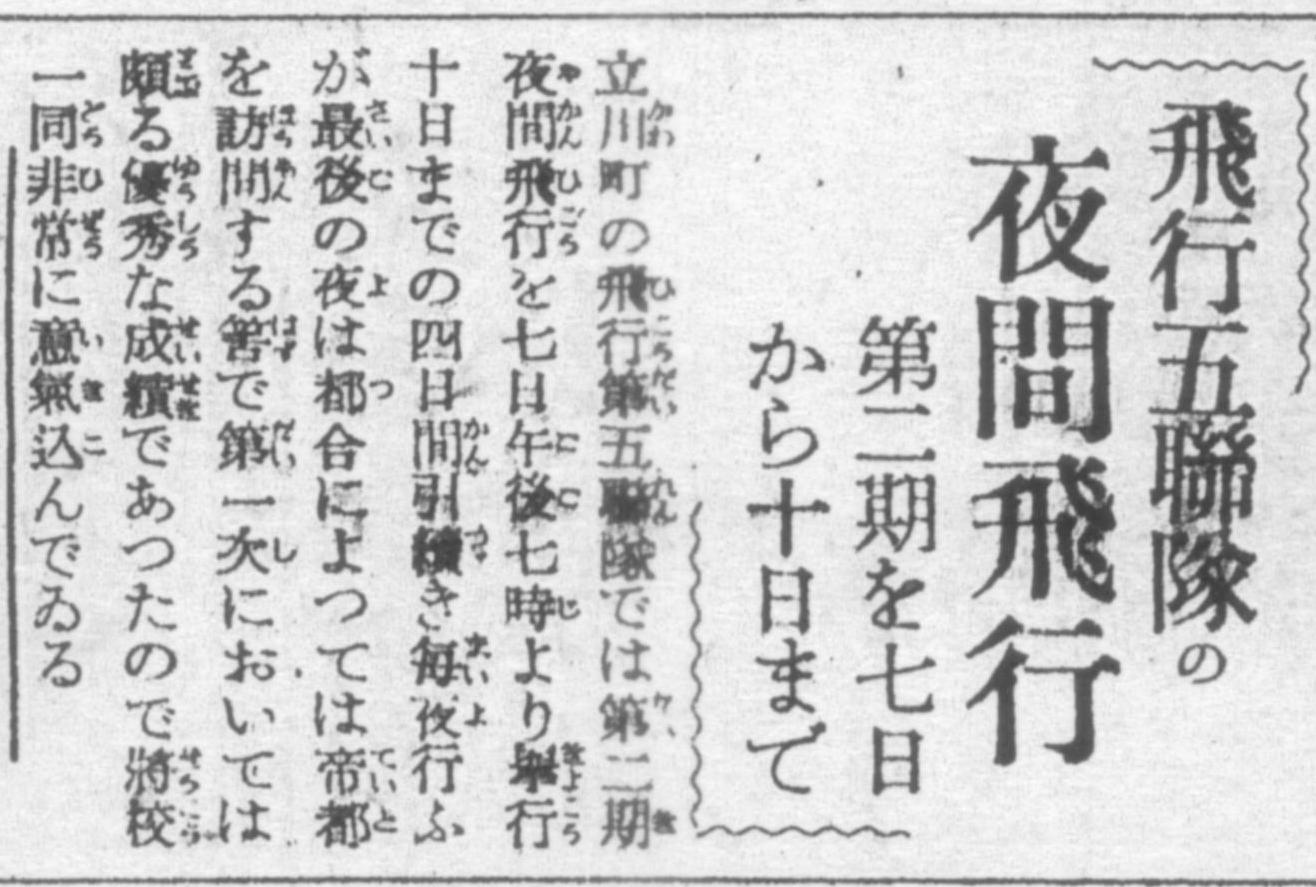 飛行五聯隊の
夜間飛行
第二期を七日
から十日まで
立川町の飛行第五聯隊では第二期
夜間飛行を七日午後七時より擧行
十日までの四日間引續き毎夜行ふ
が最後の夜は都合によつては帝都
を訪問する筈で第一次においては
頗る優秀な成績であつたので將校
一同非常に意氣込んでゐる